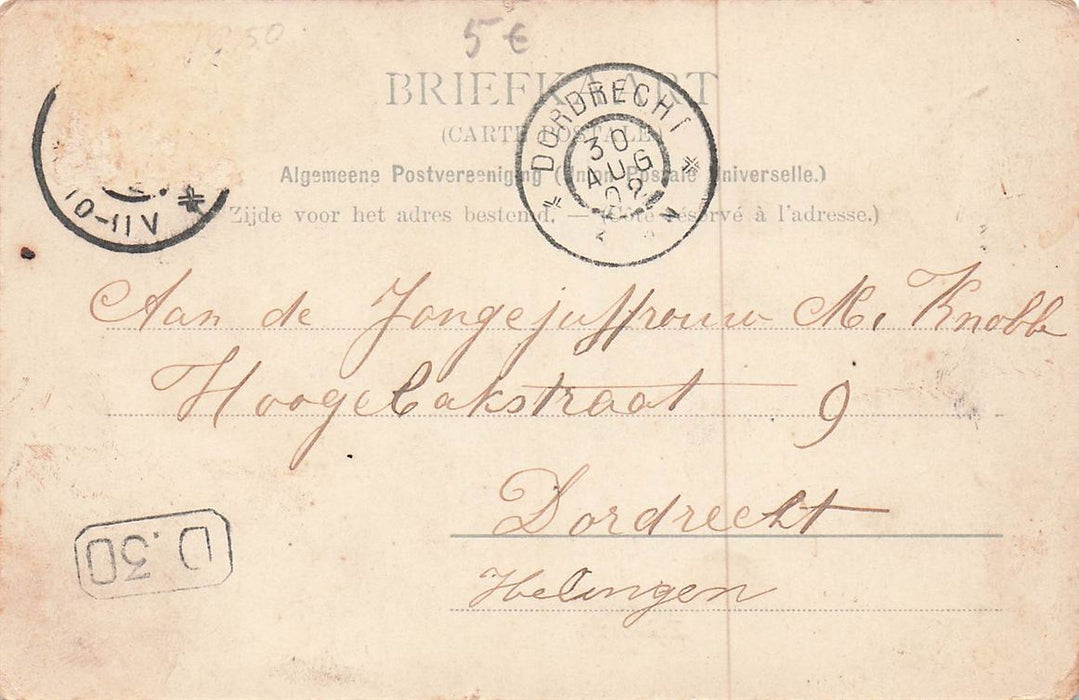 5 €
BRIEFKAART
(CARTE POSTALE)
Algemeene Postvereeniging (Union Postale Universelle.)
Zijde voor het adres bestemd. — (Côté réservé à l'adresse.)
DORDRECHT
30
AUG
02
10-11V
Aan de Jongejuffrouw M. Knobbe
Hoogebakstraat 9
Dordrecht
D.30